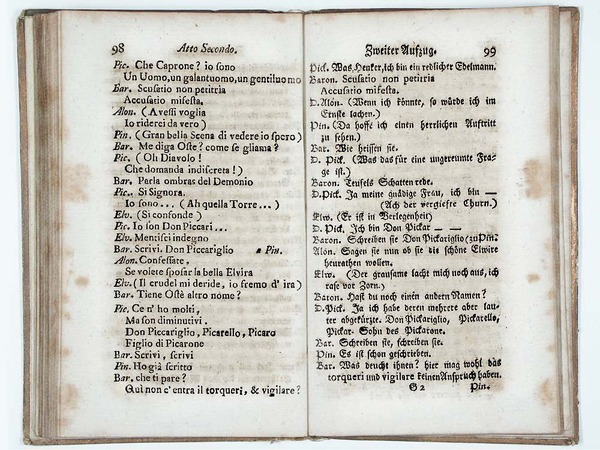 98 Atto Secondo.
Pic. Che Caprone? io sono
Un Uomo, un galantuomo, un gentiluomo
Bar. Scusatio non petitria
Accusatio mifesta.
Alon. (Avessi voglia
Io riderei da vero)
Pin. (Gran bella Scena di vedere io spero)
Bar. Me diga Oste? come se gliama?
Pic. (Oh Diavolo!
Che domanda indiscreta!)
Bar. Parla ombras del Demonio
Pic. Si Signora.
Io sono... (Ah quella Torre...)
Elv. (Si confonde)
Pic. Io son Don Piccari...
Elv. Mentisci indegno
Bar. Scrivi. Don Piccariglio a Pin.
Alon. Confessate,
Se volete sposar la bella Elvira
Elv. (Il crudel mi deride, io fremo d'ira)
Bar. Tiene Ostè altro nome?
Pic. Ce n'ho molti,
Ma son diminutivi.
Don Piccariglio, Picarello, Picaro
Figlio di Picarone
Bar. Scrivi, scrivi
Pin. Ho già scritto
Bar. che ti pare?
Quì non c'entra il torqueri, & vigilare?
Zweiter Aufzug. 99
Pick. Was, Henker, ich bin ein redlicher Edelmann.
Baron. Scusatio non petitria
Accusatio mifesta.
D. Alon. (Wenn ich könnte, so würde ich im
Ernste lachen.)
Pin. (Da hoffe ich einen herrlichen Auftritt
zu sehen.)
Bar. Wie heissen sie.
D. Pick. (Was das für eine ungereumte Fra-
ge ist.)
Baron. Teufels Schatten rede.
D. Pick. Ja meine gnädige Frau, ich bin —
(Ach der vergiefte Thurn.)
Elw. (Er ist in Verlegenheit)
D. Pick. Ich bin Don Pickar — —
Baron. Schreiben sie Don Pickariglio (zu Pin.
Alon. Sagen sie nun ob sie die schöne Elwire
heurathen wollen.
Elw. (Der grausame lacht mich noch aus, ich
rase vor Zorn.)
Baron. Hast du noch einen andern Namen?
D. Pick. Ja ich habe deren mehrere aber lau-
ter abgekürzte. Don Pickariglio, Pickarello,
Pickar. Sohn des Pickarone.
Bar. Schreiben sie, schreiben sie.
Pin. Es ist schon geschrieben.
Bar. Was deucht ihnen? hier mag wohl das
torqueri und vigilare keinen Anspruch haben.
G 2 Pin.